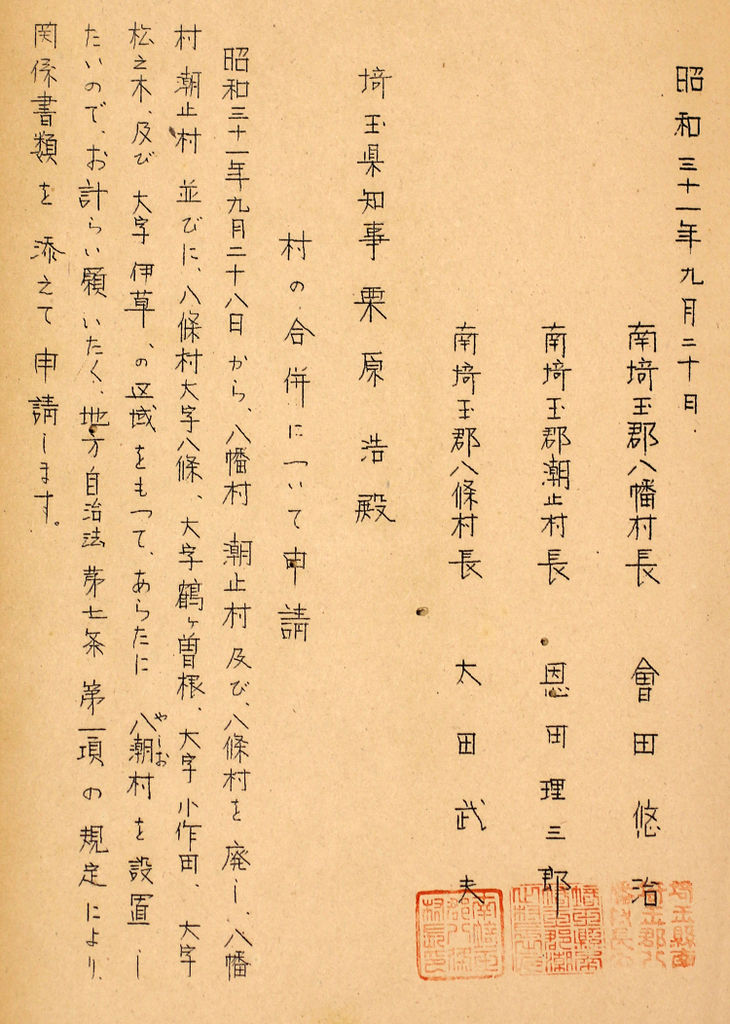 昭和三十一年九月二十日
南埼玉郡八幡村長 會田悠治
南埼玉郡潮止村長 恩田理三郎
南埼玉郡八條村長 太田武夫
埼玉県知事 栗原浩殿
村の合併について申請
昭和三十一年九月二十八日から、八幡村 潮止村 及び、八條村を廃し、八幡
村 潮止村 並びに、八條村大字八條、大字鶴ヶ曽根、大字小作田、大字
松之木、及び 大字 伊草、の区域をもつて、あらたに 八潮村を設置し
やしお
たいので、お計らい願いたく、地方自治法 第七条 第一項の規定により、
関係書類を添えて申請します。